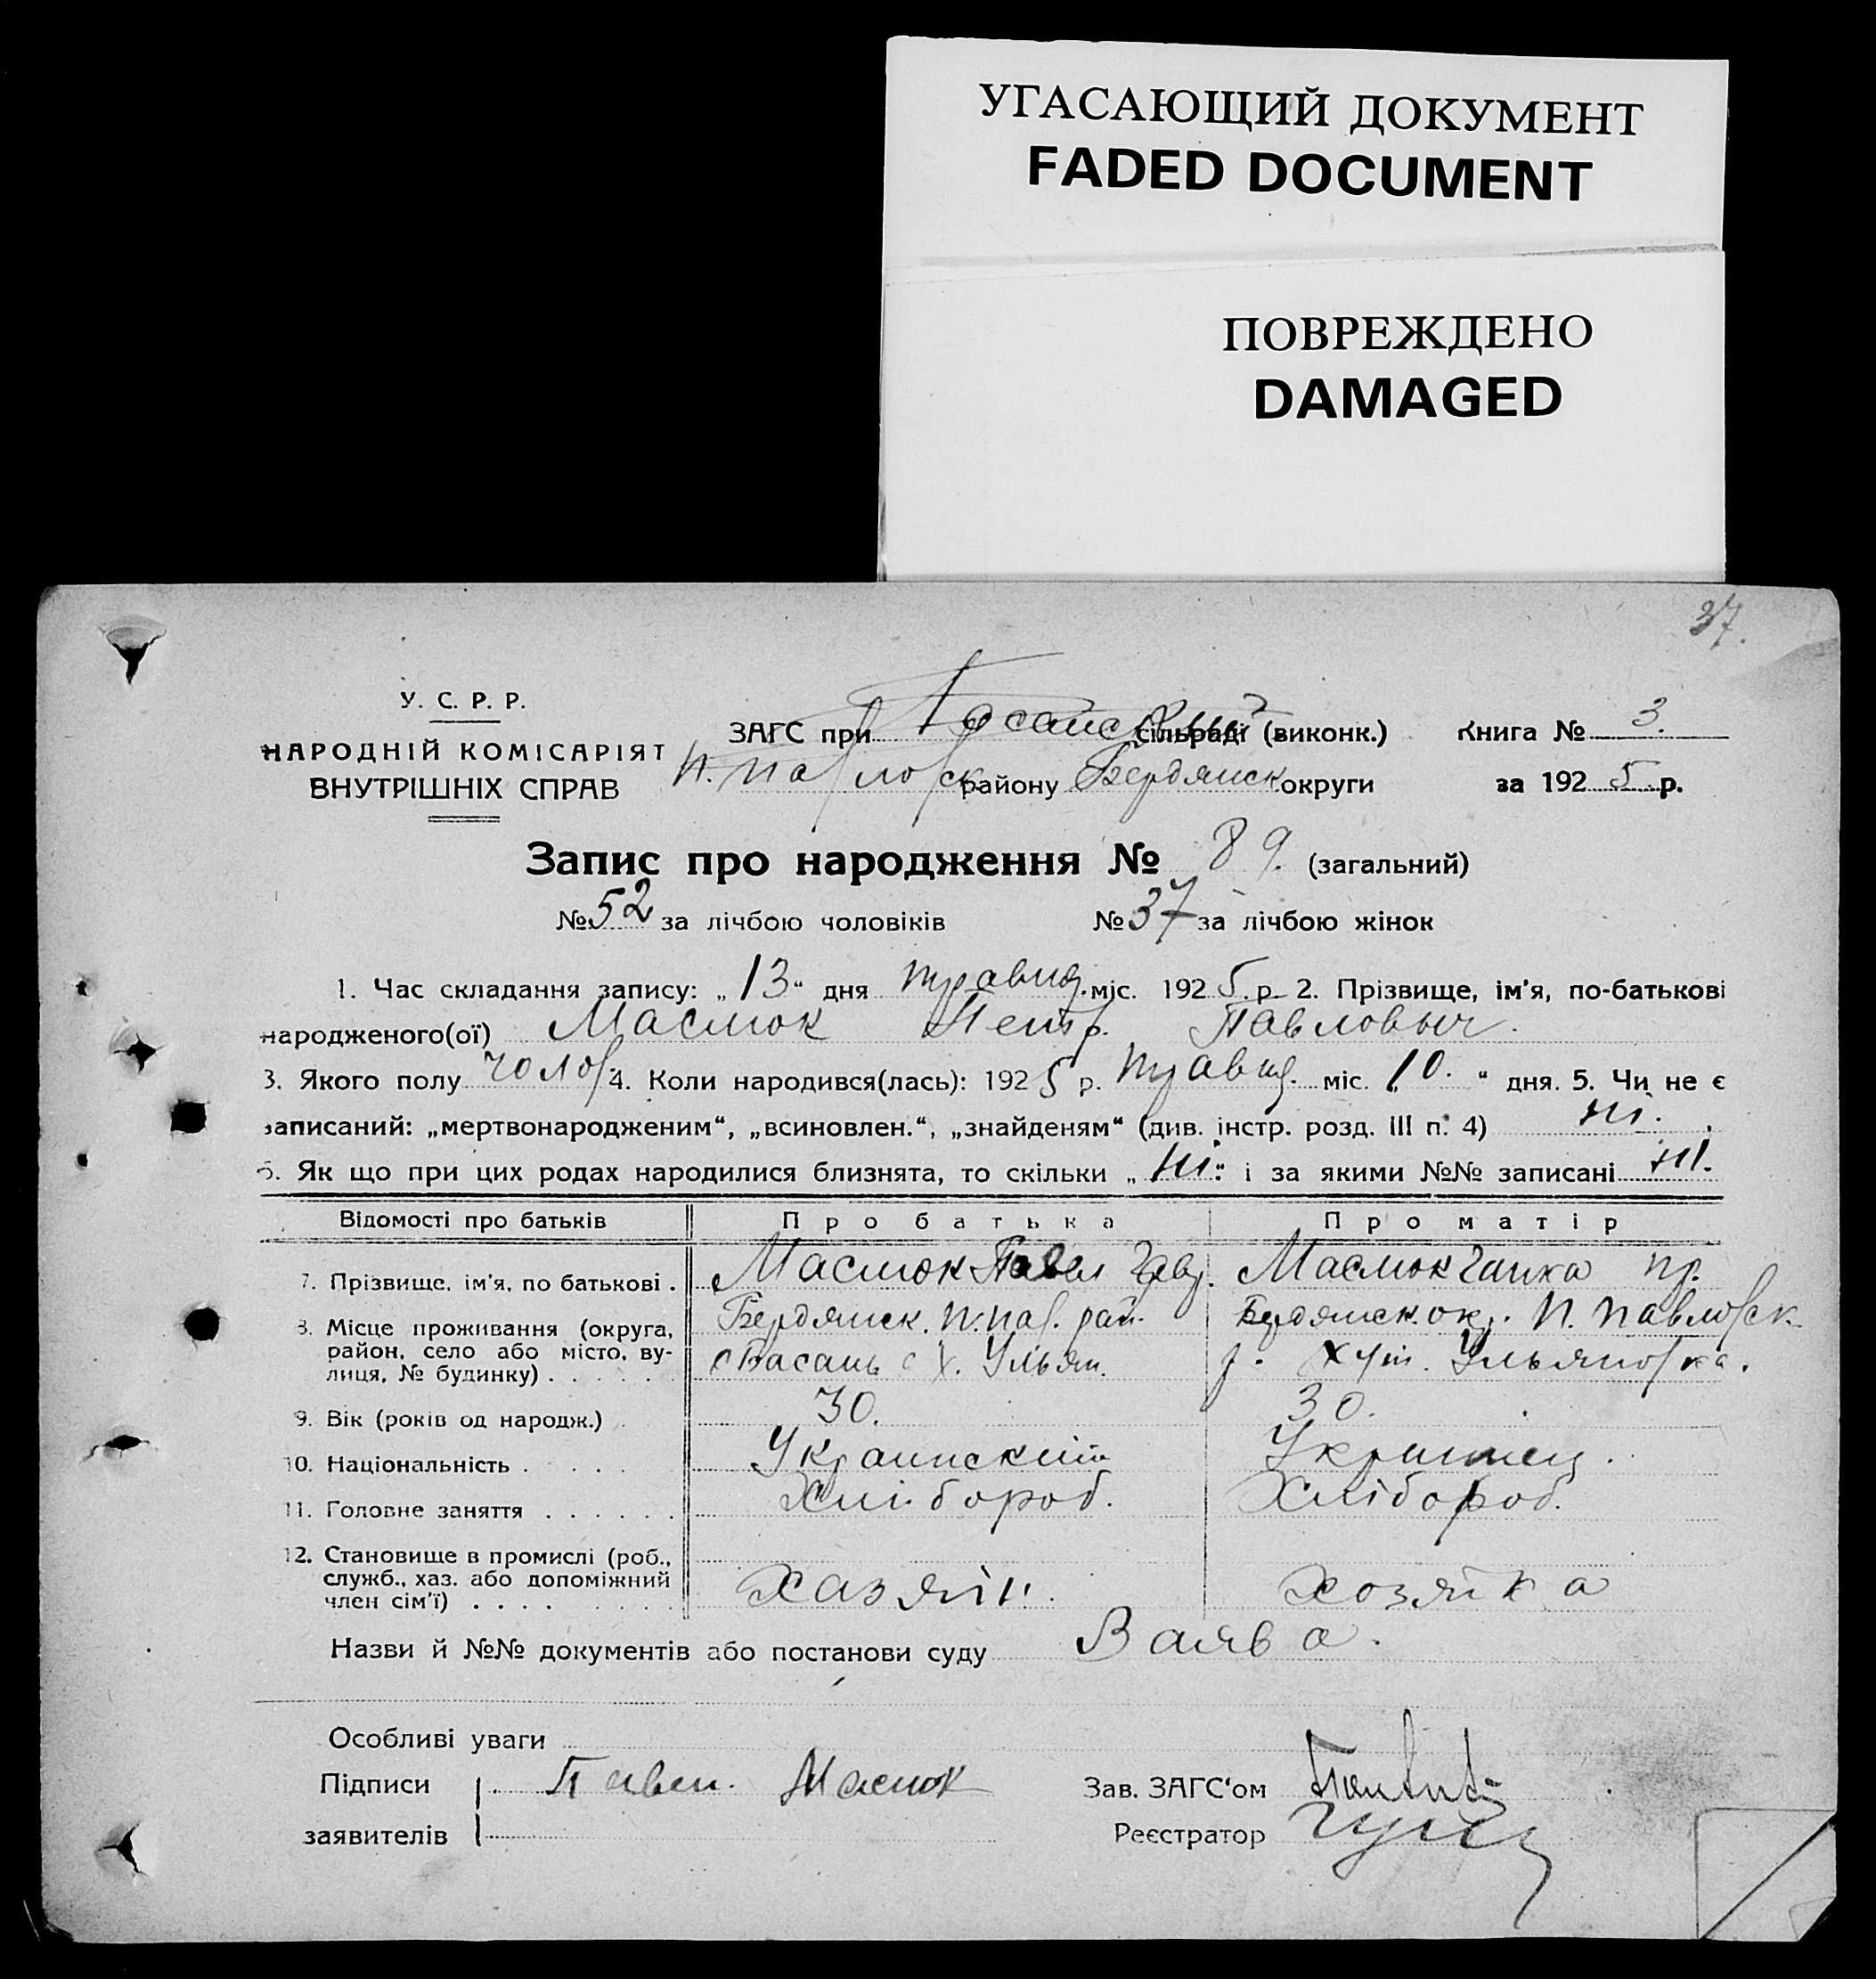 УГАСАЮЩИЙ ДОКУМЕНТ
FADED DOCUMENT
ПОВРЕЖДЕНО
DAMAGED
37.
У. С. Р. Р.
НАРОДНІЙ КОМІСАРІЯТ
ВНУТРІШНІХ СПРАВ
ЗАГС при сільраді (виконк.) Книга № 3.
району Бердянск округи за 1925 р.
Запис про народження № 89. (загальний)
№ 52 за лічбою чоловіків № 37 за лічбою жінок
1. Час складання запису: „13“ дня травня міс. 1925 р. 2. Прізвище, ім'я, по-батькові
народженого(ої) Маслюк Петр. Павлович.
3. Якого полу чолов. 4. Коли народився(лась): 1925 р. травня міс. „10.“ дня. 5. Чи не є
записаний: „мертвонародженим“, „всиновлен.“, „знайденям“ (див. інстр. розд. III п. 4) ні.
6. Як що при цих родах народилися близнята, то скільки „ні.“ і за якими №№ записані ні.
Відомості про батьків Про батька Про матір
7. Прізвище, ім'я, по батькові . Маслюк Павел Гавр. Маслюк Ганка Пр.
8. Місце проживання (округа, район, село або місто, вулиця, № будинку) . . . . . Бердянск. П. Пав. рай.
с Басань Х. Ульян. Бердянск. ок. П. Павловск.
р. Хут. Ульяновка.
9. Вік (років од народж.) 30. 30.
10. Національність . . . . . Украинский Украинец.
11. Головне заняття . . . . . . Хлібороб. Хлібороб.
12. Становище в промислі (роб., служб., хаз. або допоміжний член сім'ї) . . . . . . . . хазяін. хозяйка
Назви й №№ документів або постанови суду Заява.
Особливі уваги
Підписи Павел. Маслюк Зав. ЗАГС'ом
заявителів Реєстратор